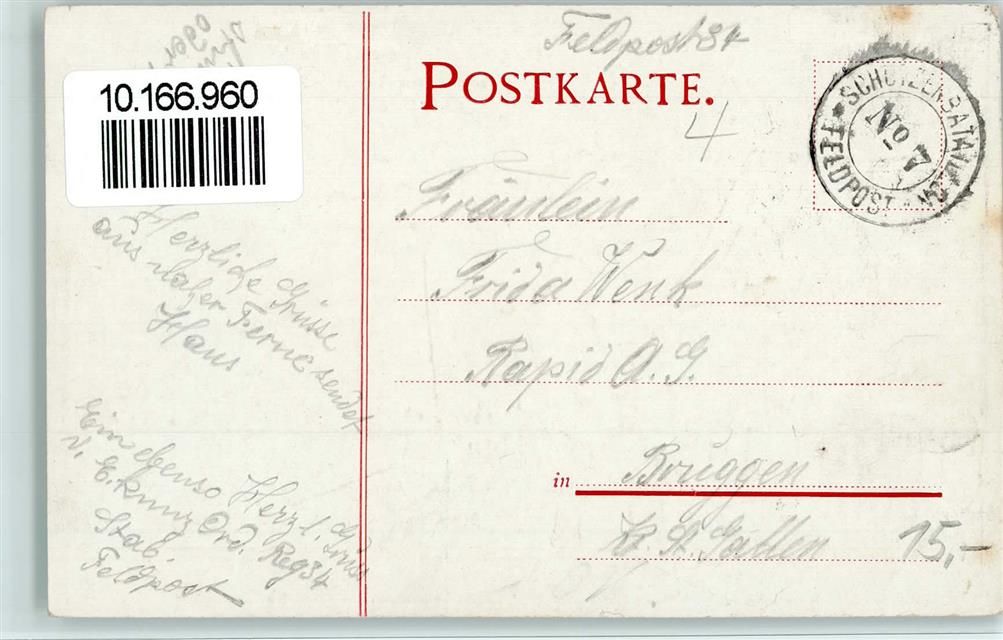 Feldpost 34
POSTKARTE.
10.166.960
SCHÜTZENBATAILLON
No 7
FELDPOST
4
Fräulein
Frida Wenk
Rapid A.G.
in Bruggen
Kt. St. Gallen
15,-
Herzliche Grüsse
aus naher Ferne sendet
Hans
Ein ebenso Herzl. Gruss
v. E. Kunz Ord. Reg 34
Stab.
Feldpost